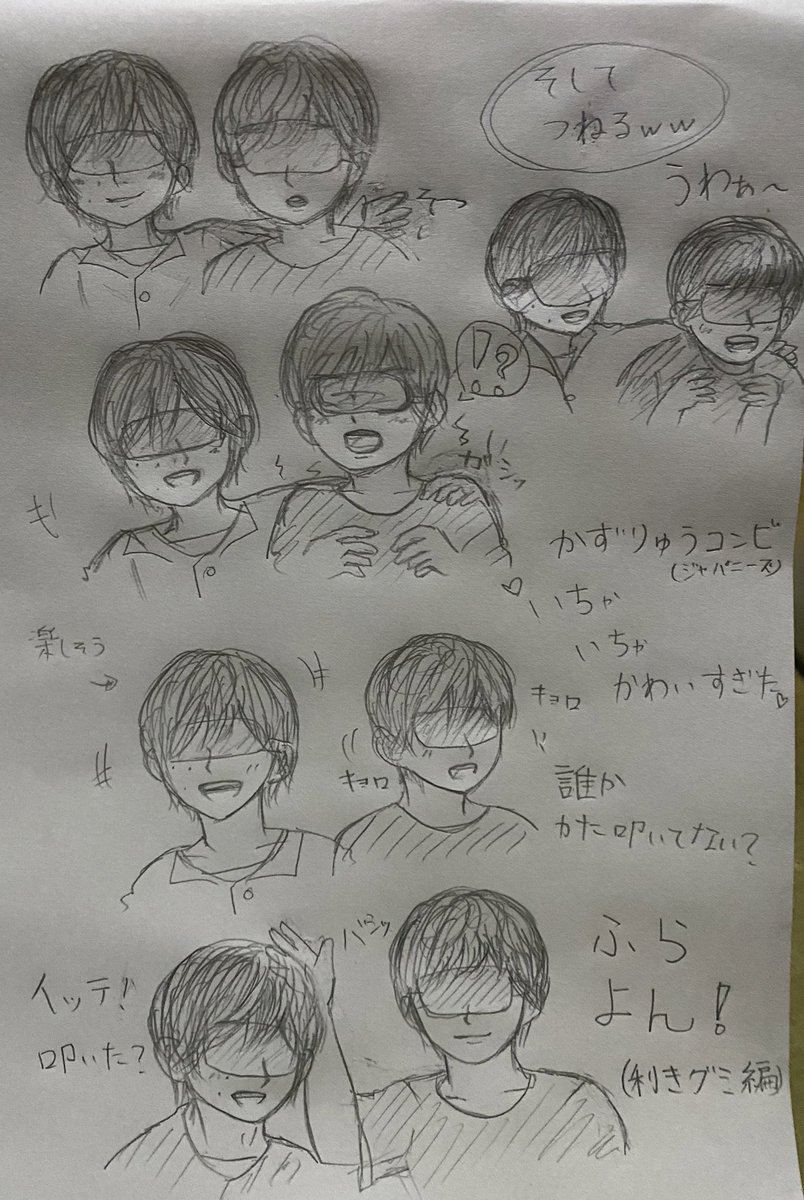 そして
つねるww
うわぁ~
そっ
!?
ガシッ
かずりゅうコンビ
(ジャパニーズ)
♡いちゃ
いちゃ
かわいすぎた♡
楽しそう
→
キョロ
キョロ
誰か
かた叩いてない?
バシッ
イッテ!
叩いた?
ふら
よん!
(利きグミ編)